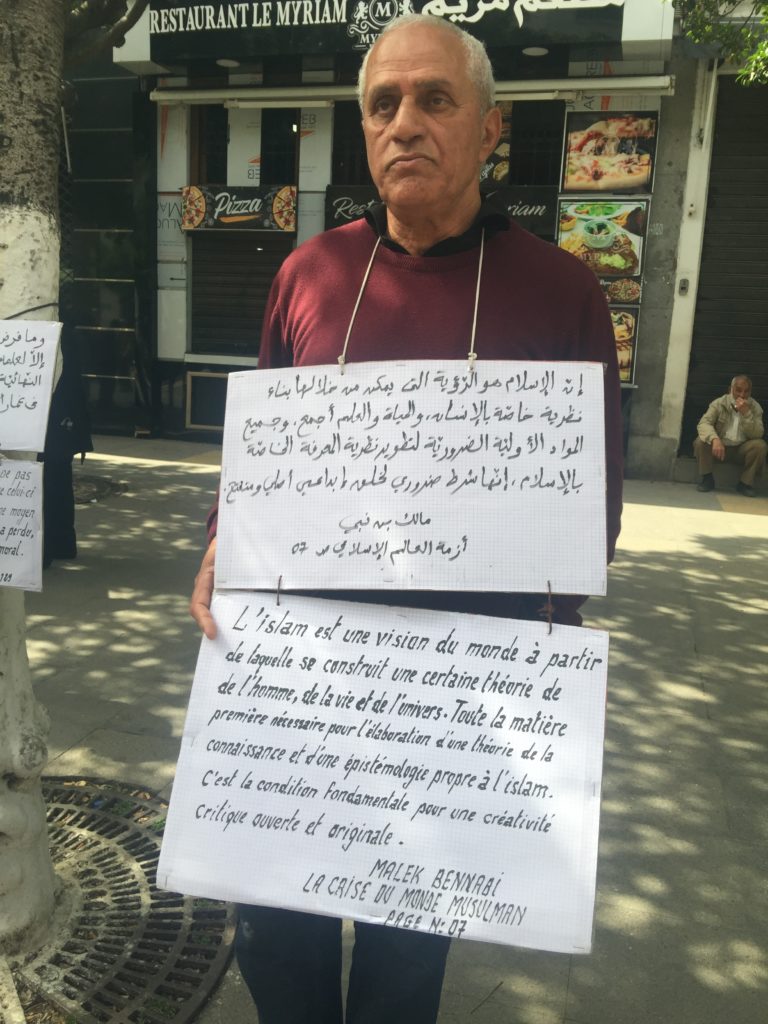 RESTAURANT LE MYRIAM
M
مطعم مريم
Pizza
وما فرض
إلا لعلماء
النهائية
ne pas
celui-ci
ne moyen
a perdu,
moral.
إنّ الإسلام هو الرّؤية التى يمكن من خلالها بناء
نظرية خاصّة بالإنسان، والحياة والعلم أجمع، وجميع
المواد الأوليّة الضروريّة لتطوير نظرية المعرفة الخاصّة
بالإسلام، إنّها شرط ضروري لخلق إبداعي أصلي ومنفتح.
مالك بن نبي
أزمة العالم الإسلامي ص 07
L'islam est une vision du monde à partir
de laquelle se construit une certaine théorie de
de l'homme, de la vie et de l'univers. Toute la matière
première nécessaire pour l'élaboration d'une théorie de la
connaissance et d'une épistémologie propre à l'islam.
C'est la condition fondamentale pour une créativité
critique ouverte et originale.
MALEK BENNABI
LA CRISE DU MONDE MUSULMAN
PAGE N: 07